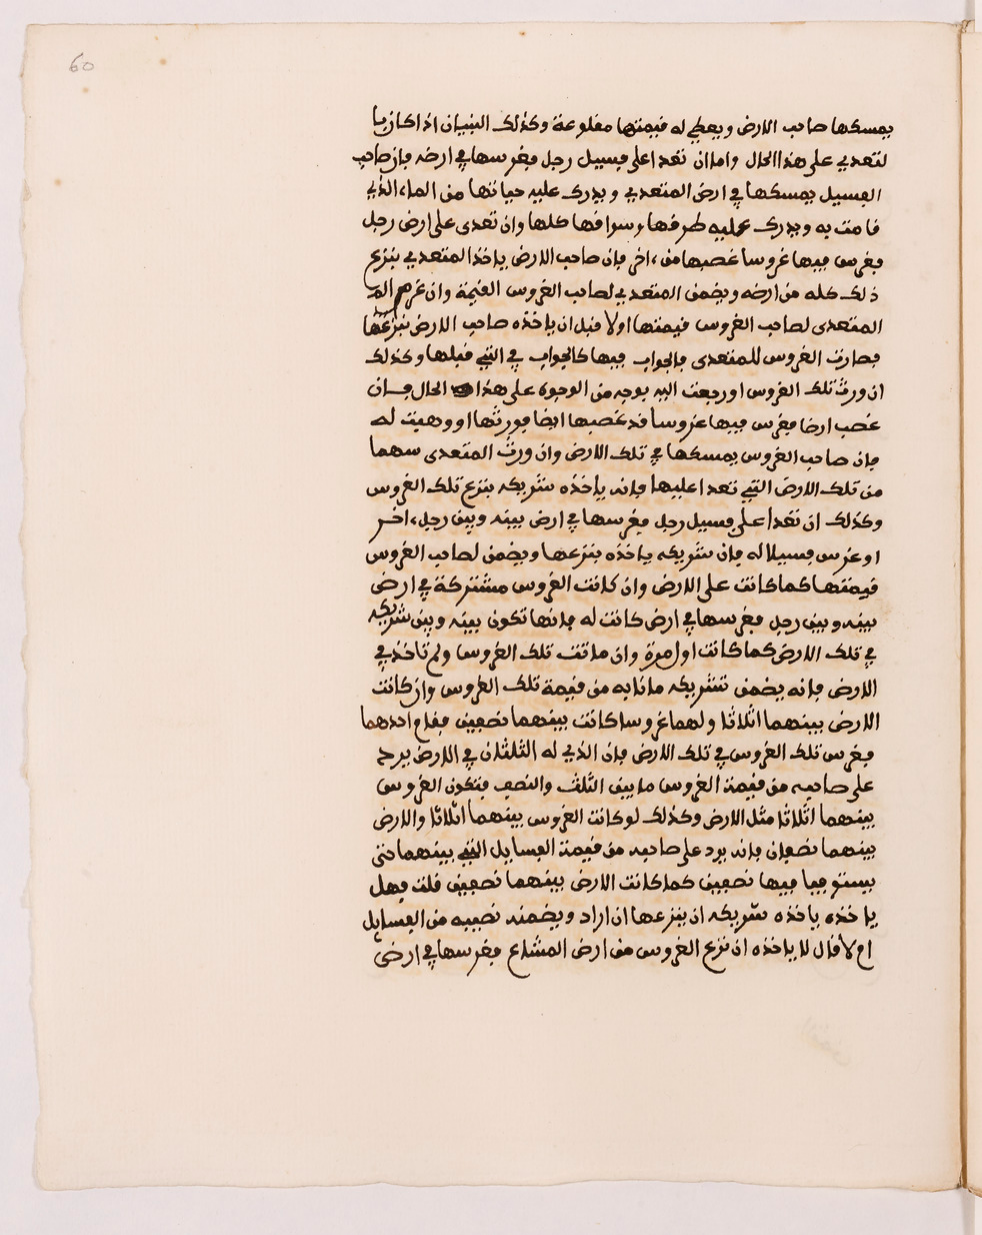 60
يمسكها صاحب الارض ويعطي له قيمتها مقلوعة وكذلك البنيان اذا كان با
لتعدي على هذا الحال واما ان تعدا على فسيل رجل فغرسها في ارضه فان صاحب
الفسيل يمسكها في ارض المتعدي ويدرك عليه حياتها من الماء الذي
قامت به ويدرك عليه طرقها وسواقها كلها وان تعدى على ارض رجل
فغرس فيها غروسا غصبها من ءاخر فان صاحب الارض ياخذ المتعدي بنزع
ذلك كله من ارضه ويضمن المتعدي لصاحب الغروس القيمة وان غرم
المتعدى لصاحب الغروس قيمتها اولا قبل ان ياخذه صاحب الارض بنزعها
فصارت الغروس للمتعدى فالجواب فيها كالجواب في التي قبلها وكذلك
ان ورث تلك الغروس او رجعت اليه بوجه من الوجوه على هذا الحال فان
غصب ارضا فغرس فيها غروسا قد غصبها ايضا فورثها او وهبت له
فان صاحب الغروس يمسكها في تلك الارض وان ورث المتعدى سهما
من تلك الارض التي تعدا عليها فانه ياخذه شريكه بنزع تلك الغروس
وكذلك ان تعدا على فسيل رجل فغرسها في ارض بينه وبين رجل ءاخر
او غرس فسيلا له فان شريكه ياخذه بنزعها ويضمن لصاحب الغروس
قيمتها كما كانت على الارض وان كانت الغروس مشتركة في ارض
بينه وبين رجل فغرسها في ارض كانت له فانها تكون بينه وبين شريكه
في تلك الارض كما كانت اول مرة وان ماتت تلك الغروس ولم تاخذ في
الارض فانه يضمن لشريكه ما نابه من قيمة تلك الغروس وان كانت
الارض بينهما اثلاثا ولهما غروسا كانت بينهما نصفين فقلع احدهما
فغرس تلك الغروس في تلك الارض فان الذي له الثلثان في الارض يرد
على صاحبه من قيمة الغروس ما بين الثلث والنصف فتكون الغروس
بينهما اثلاثا مثل الارض وكذلك لو كانت الغروس بينهما اثلاثا والارض
بينهما نصفان فانه يرد على صاحبه من قيمة الفسايل التي بينهما حتى
يستويا فيها نصفين كما كانت الارض بينهما نصفين قلت فهل
ياخذه شريكه ان ينزعها ان اراد ويضمنه نصيبه من الفسايل
ام لا قال لا ياخذه ان نزع الغروس من ارض المشاع فغرسها في ارض